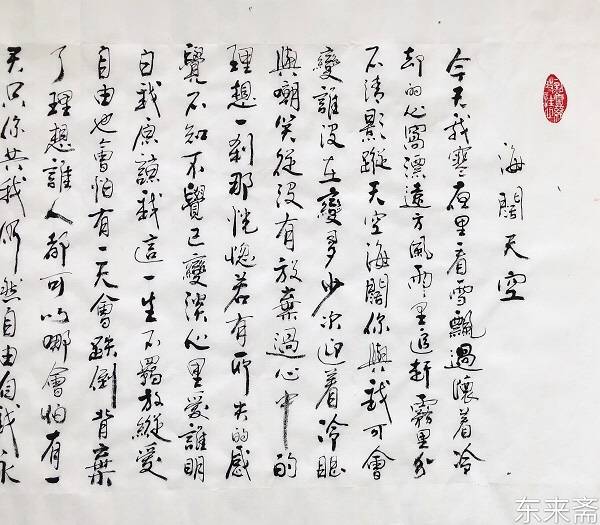 海闊天空
今天我寒夜里看雪飄過懷着冷
却的心窩漂遠方風雨里追趕霧里分
不清影蹤天空海闊你與我可會
變誰没在變多少次迎着冷眼
與嘲笑從没有放棄過心中的
理想一刹那恍惚若有所失的感
覺不知不覺已變淡心里愛誰明
白我原諒我這一生不羈放縱愛
自由也會怕有一天會跌倒背棄
了理想誰人都可以哪會怕有一
天只你共我仍然自由自我永
东来斋